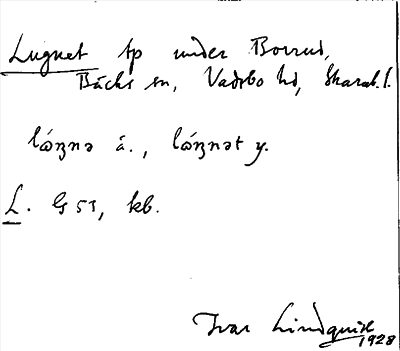 Lugnet tp under Borrud,
Bäcks sn, Vadsbo hd, Skarab. l.
lóŋnə ä., lóŋnət y.
L. G 51, kb.
Ivar Lindquist
1928